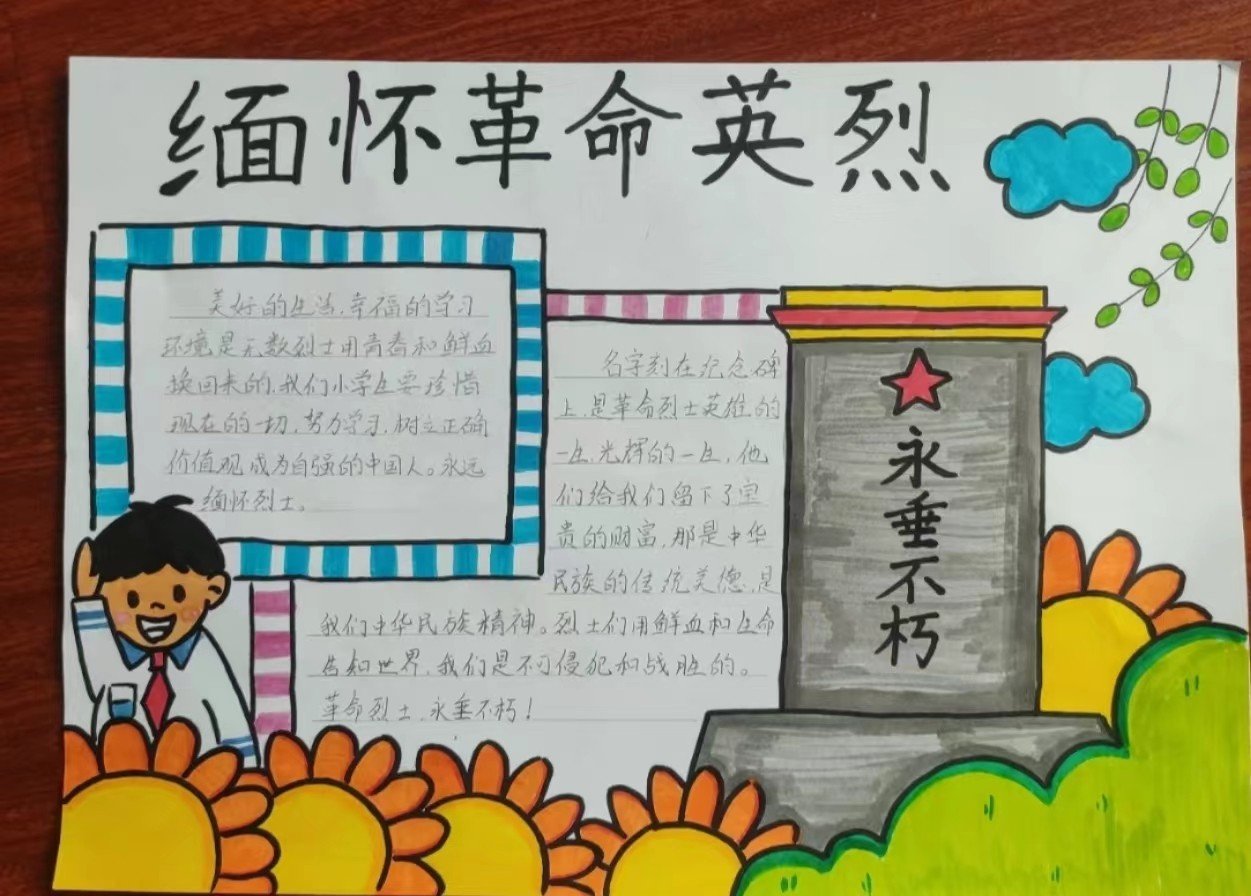 缅怀革命英烈
美好的生活,幸福的学习
环境是无数烈士用青春和鲜血
换回来的,我们小学生要珍惜
现在的一切,努力学习,树立正确
价值观成为自强的中国人。永远
缅怀烈士。
名字刻在纪念碑
上,是革命烈士英雄的
一生,光辉的一生,他
们给我们留下了宝
贵的财富,那是中华
民族的传统美德,是
我们中华民族精神。烈士们用鲜血和生命
告知世界,我们是不可侵犯和战胜的。
革命烈士,永垂不朽!
永垂不朽